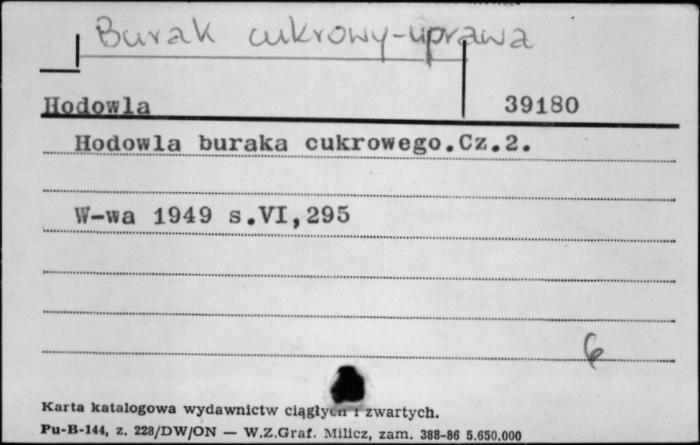 Burak cukrowy-uprawa
Hodowla 39180
Hodowla buraka cukrowego.Cz.2.
W-wa 1949 s.VI,295
6
Karta katalogowa wydawnictw ciągłych i zwartych.
Pu-B-144, z. 228/DW/ON — W.Z.Graf. Milicz, zam. 388-86 5.650.000